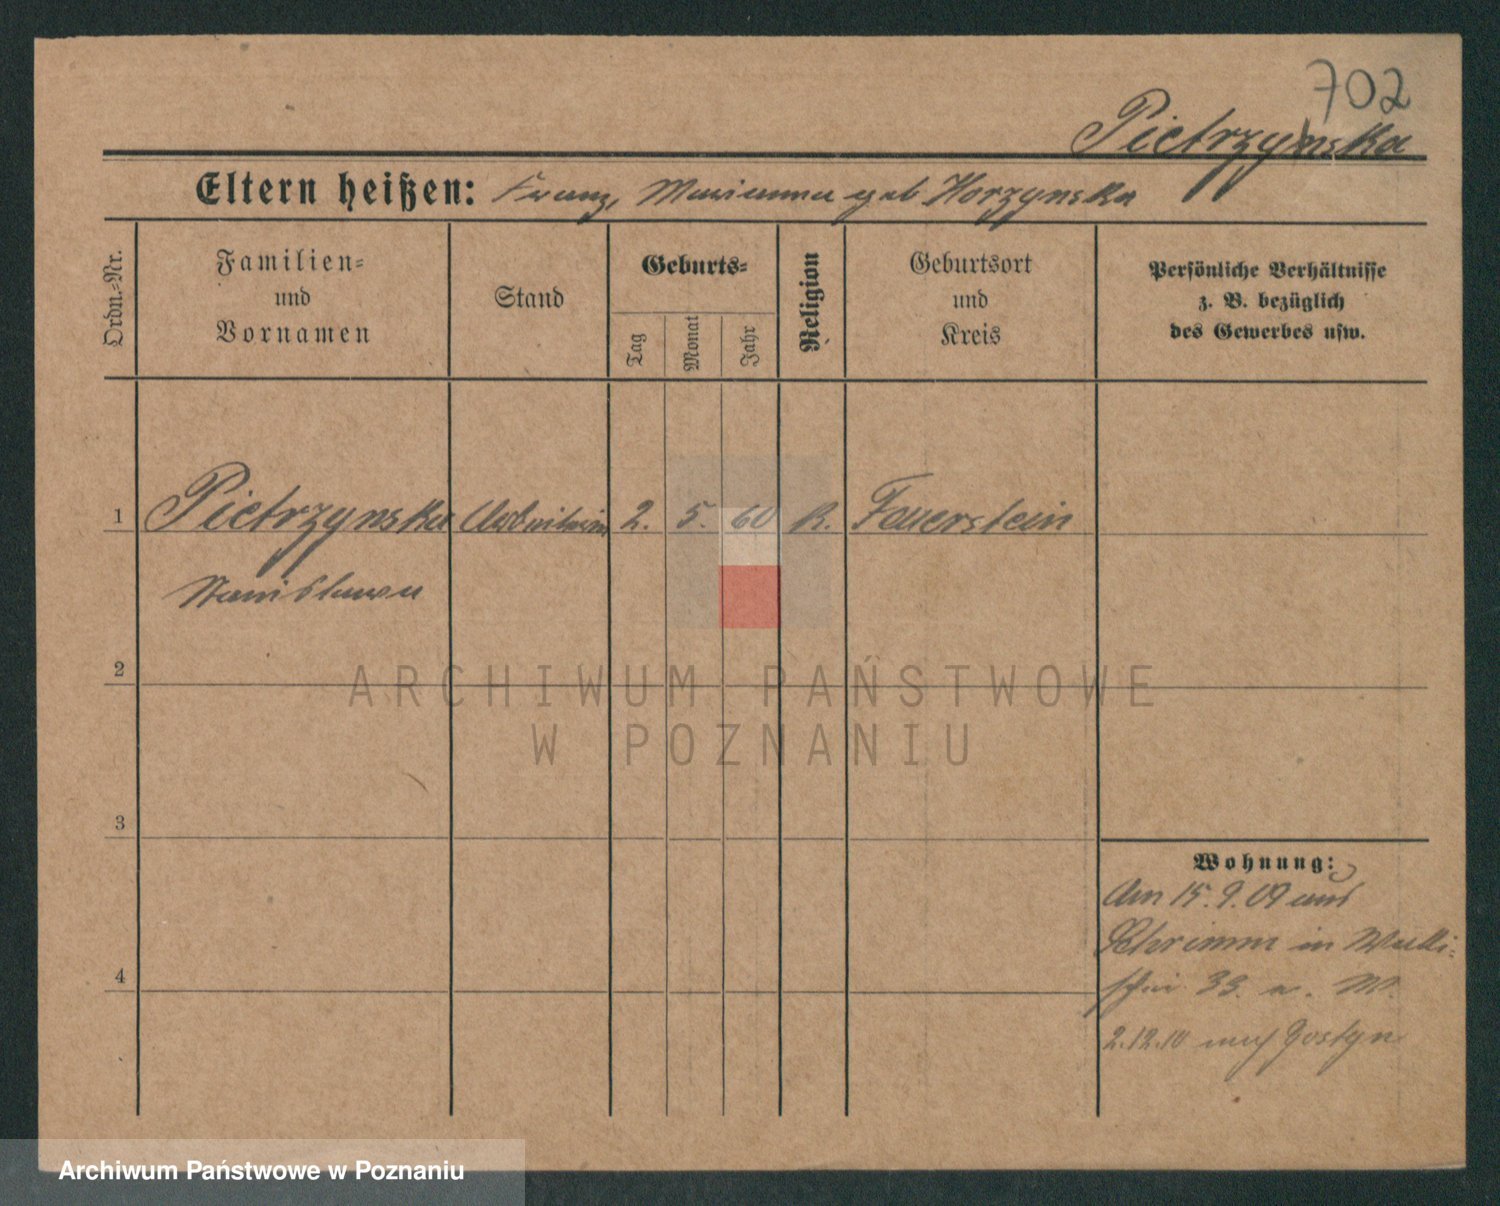 702
Pietrzynska
Eltern heißen: Franz, Marianna geb Horzynska
Ordn.-Nr.
Familien-
und
Vornamen
Stand
Geburts-
Tag
Monat
Jahr
Religion
Geburtsort
und
Kreis
Persönliche Verhältnisse
z. B. bezüglich
des Gewerbes usw.
1 Pietrzynska Arbeiterin 2. 5. 60 R. Feuerstein
Stanislawa
2
3
4
Wohnung:
Am 15.9.09 aus
Schrimm in Walli-
schei 33. W.
2.12.10 nach Gostyn
ARCHIWUM PAŃSTWOWE
W POZNANIU
Archiwum Państwowe w Poznaniu